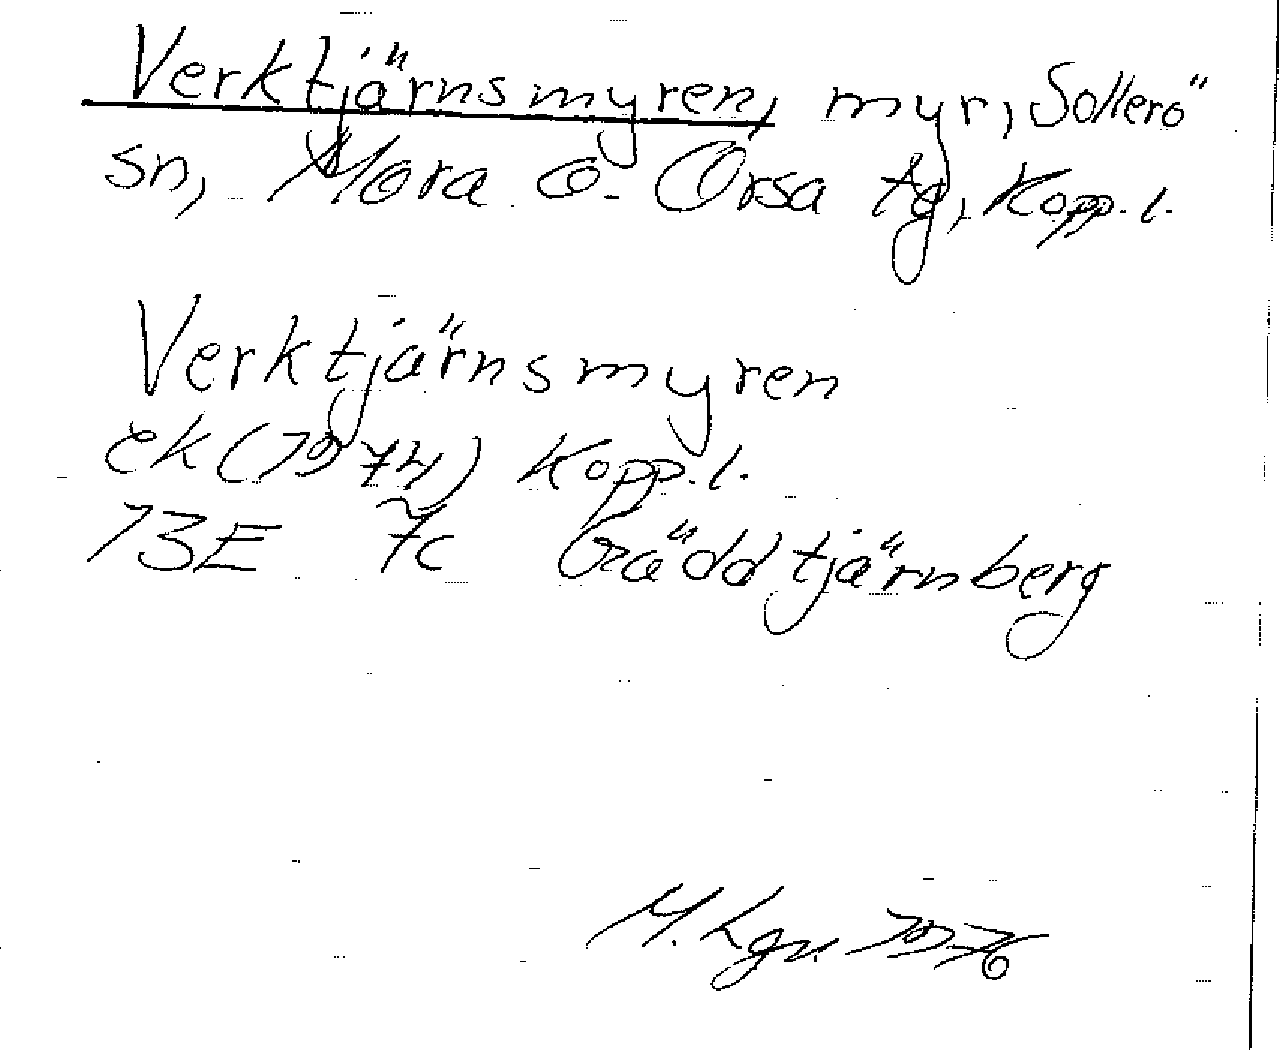 Verktjärnsmyren, myr, Sollerö
sn, Mora o. Orsa tg, Kopp. l.
Verktjärnsmyren
ek (1974) Kopp. l.
13E 7c Gäddtjärnberg
M. Lgr. 1976